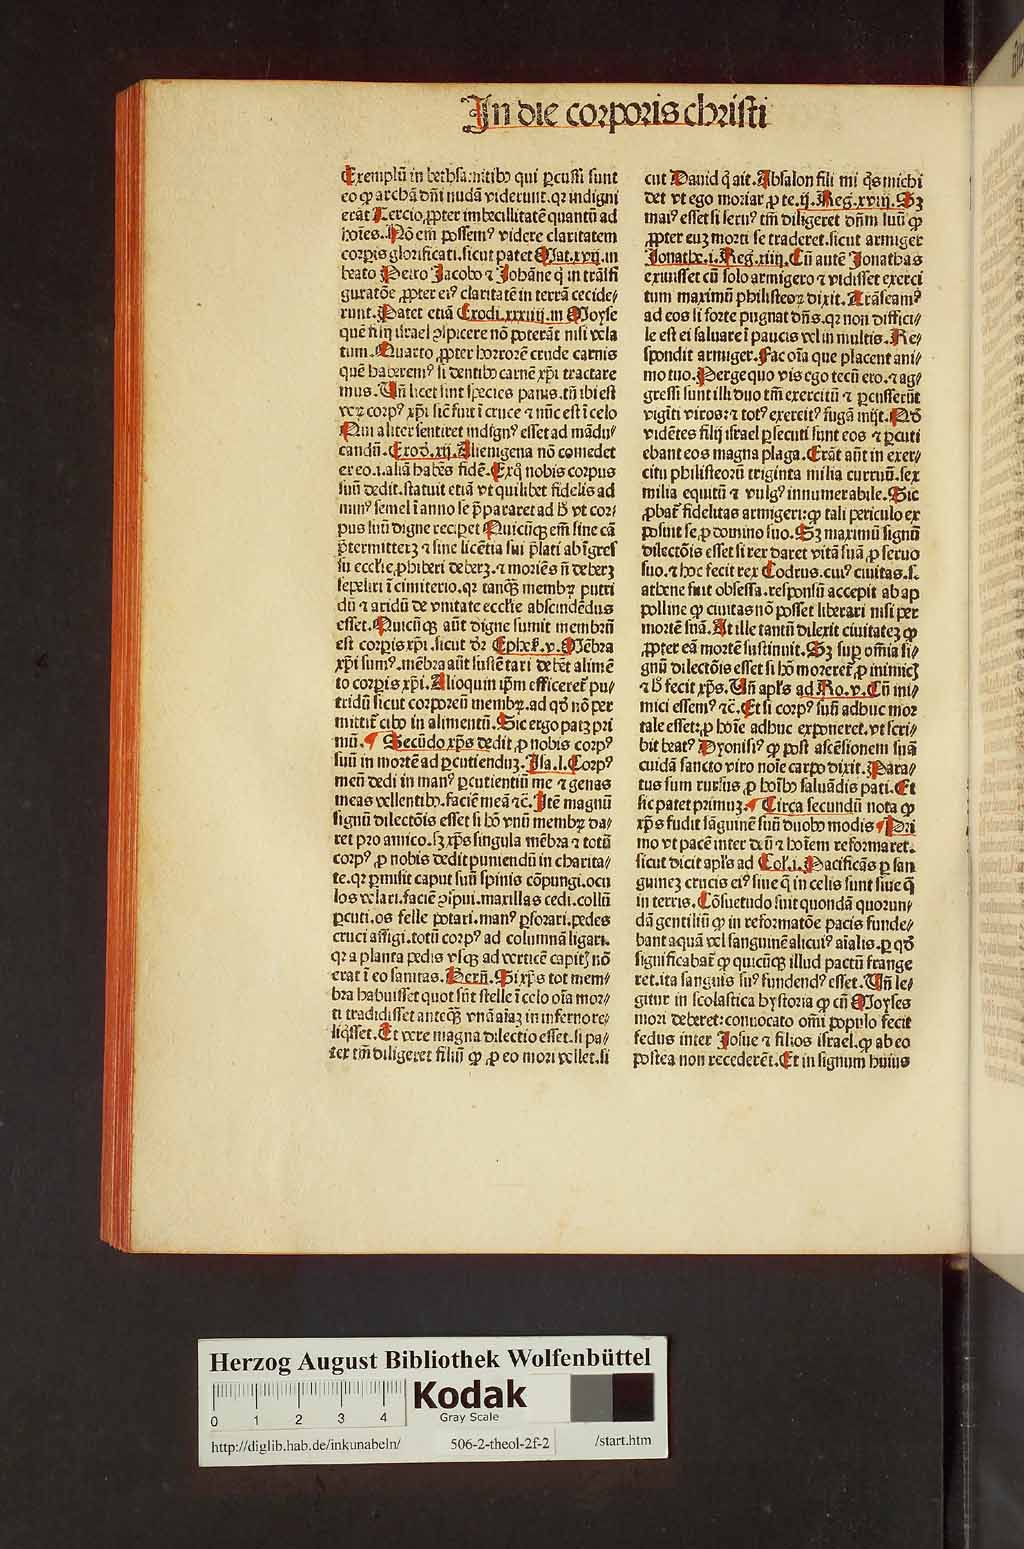 In die corporis christi
Exemplū in bethsamitibꝰ qui ꝑcussi sunt
eo ꝙ archā dn̄i nudā viderunt.qꝛ indigni
erāt Tercio.ꝓpter imbecillitatē quantū ad
hoīes. Nō em̄ possemꝰ videre claritatem
corpis glorificati.sicut patet Mat.xvij.in
beato Petro Jacobo ⁊ Johāne q̇ in trāsfi
guratōe ꝓpter eiꝰ claritatē in terrā cecide/
runt.Patet etiā Exodi.xxxiiij.in Moyse
quē filij israel ꝯspicere nō poterāt nisi vela
tum.Quarto ꝓpter horrorē crude carnis
quē haberemꝰ si dentibꝰ carnē xp̄i tractare
mus.Vn̄ licet sint species panis.tn̄ ibi est
veꝝ corpꝰ xp̄i sic̄ fuit ī cruce ⁊ nūc est ī celo
Qui aliter sentiret indignꝰ esset ad mādu/
candū.Exod.xij.Alienigena nō comedet
ex eo.i.aliā habēs fidē.Exq̇ nobis corpus
suū dedit.statuit etiā vt quilibet fidelis ad
minꝰ semel ī anno se p̄pararet ad h̄ vt cor/
pus suū digne recipet Quicūqꝫ em̄ sine cā
p̄termitterꝫ ⁊ sine licētia sui p̄lati ab īgres
su eccl̄ie ꝓhiberi deberꝫ.⁊ moriēs n̄ deberꝫ
sepeliri ī cimiterio.qꝛ tanqꝫ membꝝ putri
dū ⁊ aridū de vnitate eccl̄ie abscindēdus
esset.Quicūqꝫ aūt digne sumit membrū
est corpis xp̄i.sicut dr̄ Ephes̄.v.Mēbra
xp̄i sumꝰ.mēbra aūt sustētari debēt alimē
to corpis xp̄i.Alioquin ip̄m efficeret̄ pu/
tridū sicut corporeū membꝝ.ad qd̄ nō per
mittit̄ cibꝰ in alimentū.Sic ergo patꝫ pri
mū.¶ Secūdo xp̄s dedit ꝓ nobis corpꝰ
suū in mortē ad ꝑcutienduꝫ.Isa.l.Corpꝰ
meū dedi in manꝰ ꝑcutientiū me ⁊ genas
meas vellentibꝰ.faciē meā ⁊c̄.Itē magnū
signū dilectōis esset si hō vnū membꝝ da/
ret pro amico.sꝫ xp̄s singula mēbra ⁊ totū
corpꝰ ꝓ nobis dedit puniendū in charita/
te.qꝛ ꝑmisit caput suū spinis cōpungi.ocu
los velari.faciē ꝯspui.maxillas cedi.collū
ꝑcuti.os felle potari.manꝰ ꝑforari.pedes
cruci affigi.totū corpꝰ ad columnā ligari.
qꝛ a planta pedis vsqꝫ ad verticē capitꝭ nō
erat ī eo sanitas.Bern̄.Si xp̄s tot mem/
bra habuisset quot sūt stelle ī celo oīa mor/
ti tradidisset anteqꝫ vnā aīaꝫ in inferno re/
liq̇sset.Et vere magna dilectio esset.si pa/
ter tm̄ diligeret filiū ꝙ ꝓ eo mori vellet.si
cut Dauid q̇ ait.Absalon fili mi q̇s michi
det vt ego moriar ꝓ te.ij.Reg.xviij.Sꝫ
maiꝰ esset si seruꝰ tm̄ diligeret dn̄m suū ꝙ
ꝓpter euꝫ morti se traderet.sicut armiger
Jonathe.i.Reg.xiiij.Cū autē Jonathas
exiuisset cū solo armigero ⁊ vidisset exerci
tum maximū philisteoꝝ dixit.Trāseamꝰ
ad eos si forte pugnat dn̄s.qꝛ non diffici/
le est ei saluare ī paucis vel in multis.Re/
spondit armiger.Fac oīa que placent ani/
mo tuo.Perge quo vis ego tecū ero.⁊ ag/
gressi sunt illi duo tm̄ exercitū ⁊ ꝑcusserūt
vigīti viros:⁊ totꝰ exercitꝰ fugā inijt.Qd̄
vidētes filij israel ꝑsecuti sunt eos ⁊ ꝑcuti
ebant eos magna plaga.Erāt aūt in exer/
citu philisteorū triginta milia curruū.sex
milia equitū ⁊ vulgꝰ innumerabile.Sic
ꝓbat̄ fidelitas armigeri:ꝙ tali periculo ex
posuit se ꝓ domino suo.Sꝫ maximū signū
dilectōis esset si rex daret vitā suā ꝓ seruo
suo.⁊ hoc fecit rex Codrus.cuiꝰ ciuitas.s.
athene fuit obsessa.responsū accepit ab ap
polline ꝙ ciuitas nō posset liberari nisi per
mortē suā.At ille tantū dilexit ciuitateꝫ ꝙ
ꝓpter eā mortē sustinuit.Sꝫ suꝑ om̄ia si/
gnū dilectōis esset si hō moreret̄ ꝓ inimicꝭ
⁊ h̄ fecit xp̄s.Vn̄ apl̄s ad Ro.v.Cū ini/
mici essemꝰ ⁊c̄.Et si corpꝰ suū adhuc mor
tale esset:ꝓ hoīe adhuc exponeret.vt scri/
bit beatꝰ Dyonisiꝰ ꝙ post ascēsionem suā
cuidā sancto viro noīe carpo dixit.Para/
tus sum rursus ꝓ hoībꝰ saluādis pati.Et
sic patet primuꝫ.¶ Circa secundū nota ꝙ
xp̄s fudit sāguinē suū duobꝰ modis ¶Pri
mo vt pacē inter deū ⁊ hoīem reformaret.
sicut dicit apl̄s ad Col̄.i.Pacificās ꝑ san
guineꝫ crucis eiꝰ siue q̄ in celis sunt siue q̄
in terris.Cōsuetudo fuit quondā quorun/
dā gentiliū ꝙ in reformatōe pacis funde/
bant aquā vel sanguinē alicuiꝰ aīalis.ꝑ qd̄
significabat̄ ꝙ quicūqꝫ illud pactū frange
ret.ita sanguis suꝰ fundendꝰ esset.Vn̄ le/
gitur in scolastica hystoria ꝙ cū Moyses
mori deberet:conuocato om̄i populo fecit
fedus inter Josue ⁊ filios israel.ꝙ ab eo
postea non recederēt.Et in signum huius
Herzog August Bibliothek Wolfenbüttel
0 1 2 3 4
Kodak
Gray Scale
http://diglib.hab.de/inkunabeln/ 506-2-theol-2f-2 /start.htm